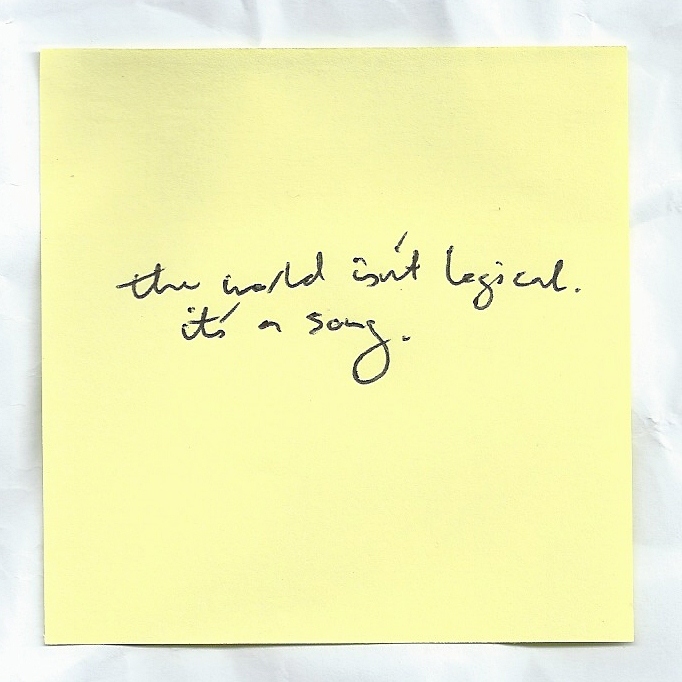 the world isn't logical.
it's a song.